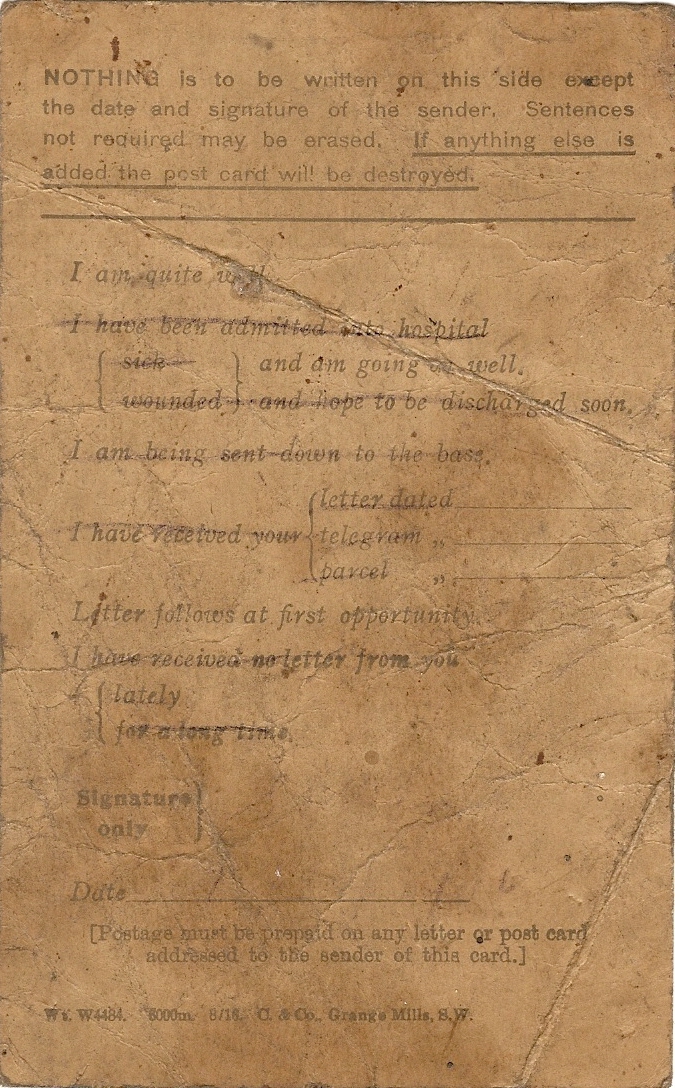 NOTHING is to be written on this side except
the date and signature of the sender. Sentences
not required may be erased. If anything else is
added the post card will be destroyed.
I am quite well.
I have been admitted into hospital
{ sick } and am going on well.
{ wounded } and hope to be discharged soon.
I am being sent down to the base.
I have received your { letter dated
telegram „
parcel „
Letter follows at first opportunity.
I have received no letter from you
{ lately
for a long time.
Signature
only }
Date
[Postage must be prepaid on any letter or post card
addressed to the sender of this card.]
Wt. W4484. 6000m. 8/16. C. & Co., Grange Mills, S.W.